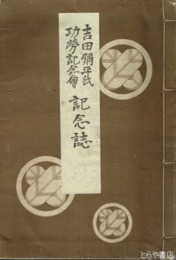 吉田彌平氏
功勞記念會
記念誌
とらや書房